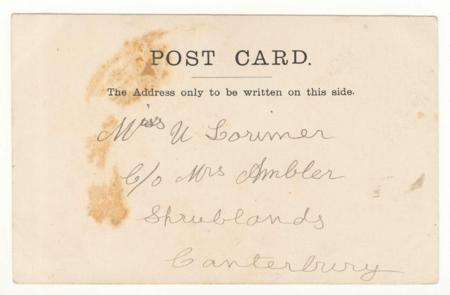 POST CARD.
The Address only to be written on this side.
Miss U Lorimer
C/o Mrs Ambler
Shrublands
Canterbury